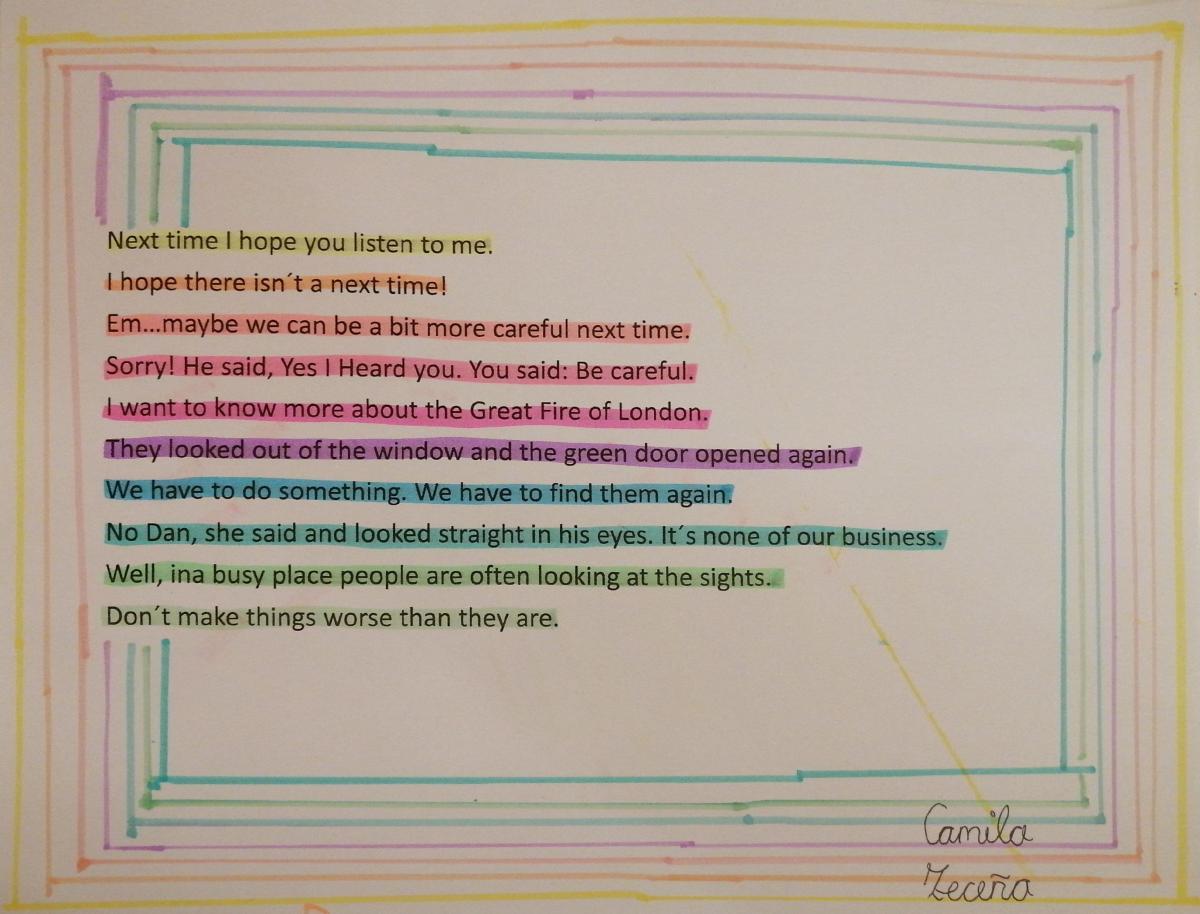 Next time I hope you listen to me.
I hope there isn´t a next time!
Em...maybe we can be a bit more careful next time.
Sorry! He said, Yes I Heard you. You said: Be careful.
I want to know more about the Great Fire of London.
They looked out of the window and the green door opened again.
We have to do something. We have to find them again.
No Dan, she said and looked straight in his eyes. It´s none of our business.
Well, ina busy place people are often looking at the sights.
Don´t make things worse than they are.
Camila
Zeceña